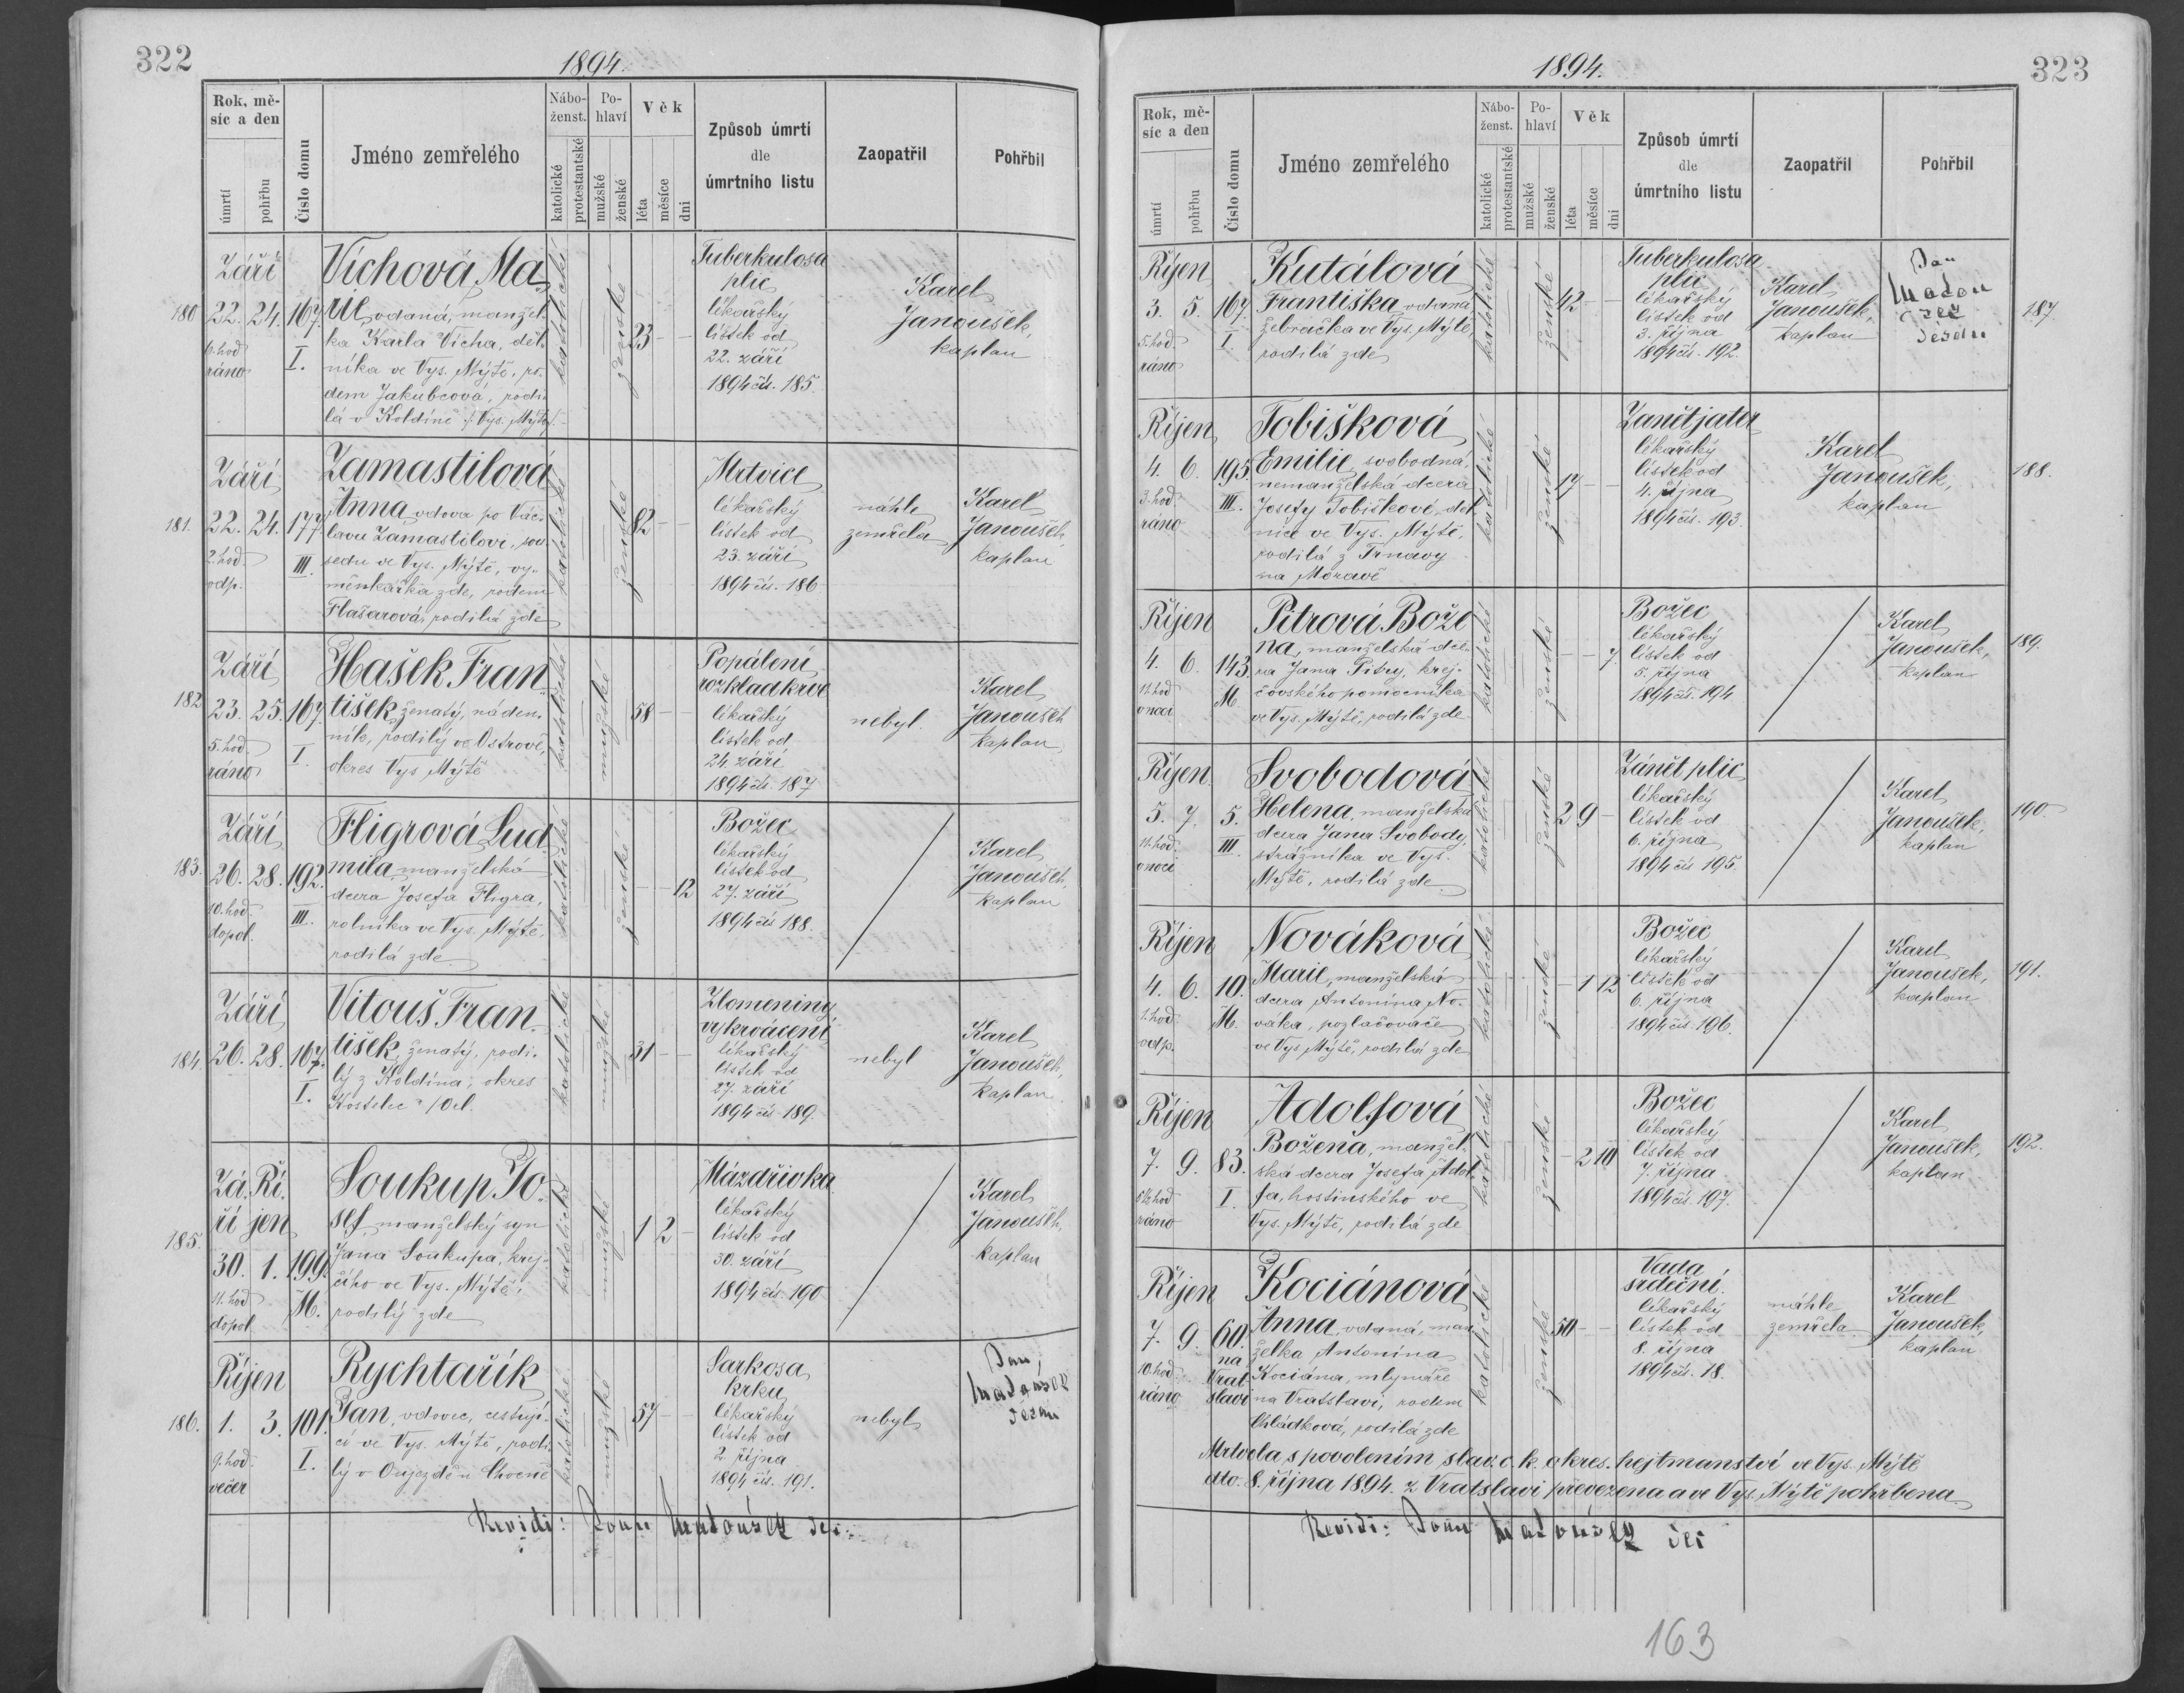 322
1894.
Rok, mě-
síc a den
úmrtí
pohřbu
Číslo domu
Jméno zemřelého
Nábo-
ženst.
katolické
protestantské
Po-
hlaví
mužské
ženské
Věk
léta
měsíce
dni
Způsob úmrtí
dle
úmrtního listu
Zaopatřil
Pohřbil
180
Září
22. 24. 167.
6. hod. I.
ráno
Víchová Ma
rie, vdaná, manžel-
ka Karla Vícha, děl-
níka ve Vys. Mýtě, ro-
dem Jakubcová, rodi-
lá v Koldíně /: Vys. Mýto:/
katolické
ženské
23 — —
Tuberkulosa
plic
lékařský
lístek od
22. září
1894 čís. 185.
Karel
Janoušek,
kaplan
181.
Září
22. 24. 177
2. hod. III.
odp.
Zamastilová
Anna, vdova po Vác-
lavu Zamastilovi, sou-
sedu ve Vys. Mýtě, vý-
měnkářka zde, rodem
Flašarová, rodilá zde
katolické
ženské
82 — —
Mrtvice
lékařský
lístek od
23. září
1894 čís. 186
náhle
zemřela
Karel
Janoušek,
kaplan
182
Září
23. 25. 167.
5. hod. I.
ráno
Hašek Fran-
tišek, ženatý, náden-
ník, rodilý ve Ostrově,
okres Vys Mýtě
katolické
mužské
58 — —
Popálení
rozklad krve
lékařský
lístek od
24. září
1894 čís. 187
nebyl.
Karel
Janoušek
kaplan
183.
Září
26. 28. 192.
10. hod. III.
dopol.
Fligrová Lud
mila, manželská
dcera Josefa Fligra,
rolníka ve Vys. Mýtě,
rodilá zde
katolické
ženské
— — 12
Božec
lékařský
lístek od
27. září
1894 čís 188.
Karel
Janoušek,
kaplan
184.
Září
26. 28. 167.
I.
Vitouš Fran-
tišek, ženatý, rodi-
lý z Koldína, okres
Kostelec n/Orl.
katolické
mužské
31 — —
Zlomeniny
vykrvácení
lékařský
lístek od
27. září
1894 čís 189.
nebyl
Karel
Janoušek,
kaplan
185.
Zá- Ří-
ří jen
30. 1. 199.
11. hod M.
dopol
Soukup Jo-
sef, manželský syn
Jana Soukupa, krej-
čího ve Vys. Mýtě,
rodilý zde
katolické
mužské
1 2 —
Mázdřivka
lékařský
lístek od
30. září
1894 čís. 190
Karel
Janoušek,
kaplan
186.
Říjen
1. 3. 101.
9. hod. I.
večer
Rychtařík
Jan, vdovec, cestují-
cí ve Vys. Mýtě, rodi-
lý v Oujezdě u Chocně
katolické
mužské
57 — —
Sarkosa
krku
lékařský
lístek od
2. října
1894 čís. 191.
nebyl
Jan
Matoušek
děkan
Revidi: Joan Matoušek dec.
323
1894.
Rok, mě-
síc a den
úmrtí
pohřbu
Číslo domu
Jméno zemřelého
Nábo-
ženst.
katolické
protestantské
Po-
hlaví
mužské
ženské
Věk
léta
měsíce
dni
Způsob úmrtí
dle
úmrtního listu
Zaopatřil
Pohřbil
Říjen
3. 5. 167.
5. hod. I.
ráno
Kutálová
Františka, vdaná
žebračka ve Vys. Mýtě,
rodilá zde
katolické
ženské
42 — —
Tuberkulosa
plic
lékařský
lístek od
3. října
1894 čís. 192.
Karel
Janoušek,
kaplan
Jan
187.
Říjen
4. 6. 195.
3. hod. III.
ráno
Tobišková
Emilie, svobodná,
nemanželská dcera
Josefy Tobiškové, děl-
nice ve Vys. Mýtě,
rodilá z Trnavy
na Moravě
katolické
ženské
17 — —
Zanět jater
lékařský
lístek od
4. října
1894 čís. 193.
Karel
Janoušek,
kaplan
188.
Říjen
4. 6. 143.
11. hod M
v noci
Pitrová Bože
na, manželská dce-
ra Jana Pitry, krej-
čovského pomocníka
ve Vys. Mýtě, rodilá zde
katolické
ženské
— — 7
Božec
lékařský
lístek od
5. října
1894 čís. 194
Karel
Janoušek,
kaplan
189.
Říjen
5. 7. 5.
11. hod. III
v noci
Svobodová
Helena, manželská
dcera Jana Svobody,
strážníka ve Vys.
Mýtě, rodilá zde
katolické
ženské
2 9 —
Zánět plic
lékařský
lístek od
6. října
1894 čís 195.
Karel
Janoušek,
kaplan
190.
Říjen
4. 6. 10.
1. hod. M.
odp.
Nováková
Marie, manželská
dcera Antonína No-
váka, pozlačovače
ve Vys Mýtě, rodilá zde
katolické
ženské
— 1 12
Božec
lékařský
lístek od
6. října
1894 čís. 196.
Karel
Janoušek,
kaplan
191.
Říjen
7. 9. 83.
5½ hod I.
ráno
Adolfová
Božena, manžel-
ská dcera Josefa Adol-
fa, hostinského ve
Vys. Mýtě, rodilá zde
katolické
ženské
— 2 10
Božec
lékařský
lístek od
7. října
1894 čís. 197.
Karel
Janoušek,
kaplan
192.
Říjen
7. 9. 60.
na
10. hod Vrat-
ráno slavi
Kociánová
Anna, vdaná, man-
želka Antonína
Kociána, mlynáře
na Vratslavi, rodem
Chládková, rodilá zde
katolické
ženské
50 — —
Vada
srdeční.
lékařský
lístek od
8. října
1894 čís. 18.
náhle
zemřela
Karel
Janoušek,
kaplan
Mrtvola s povolením slav. c. k. okres. hejtmanství ve Vys. Mýtě
dto. 8. října 1894. z Vratslavi převezena a ve Vys. Mýtě pohřbena.
Revidi: Joan Matoušek dec
163